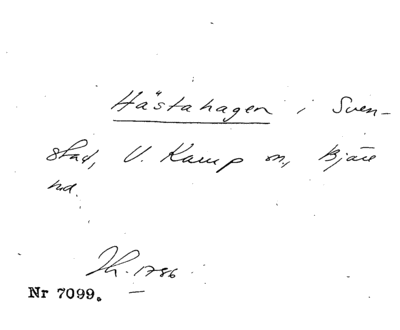 Hästahagen i Sven-
stad, V. Karup sn, Bjäre
hd.
Th. 1786
Nr 7099.